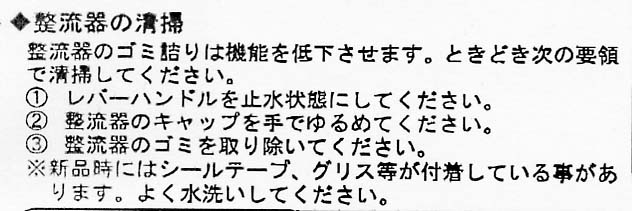 ◆整流器の清掃
整流器のゴミ詰りは機能を低下させます。ときどき次の要領
で清掃してください。
① レバーハンドルを止水状態にしてください。
② 整流器のキャップを手でゆるめてください。
③ 整流器のゴミを取り除いてください。
※新品時にはシールテープ、グリス等が付着している事があ
ります。よく水洗いしてください。